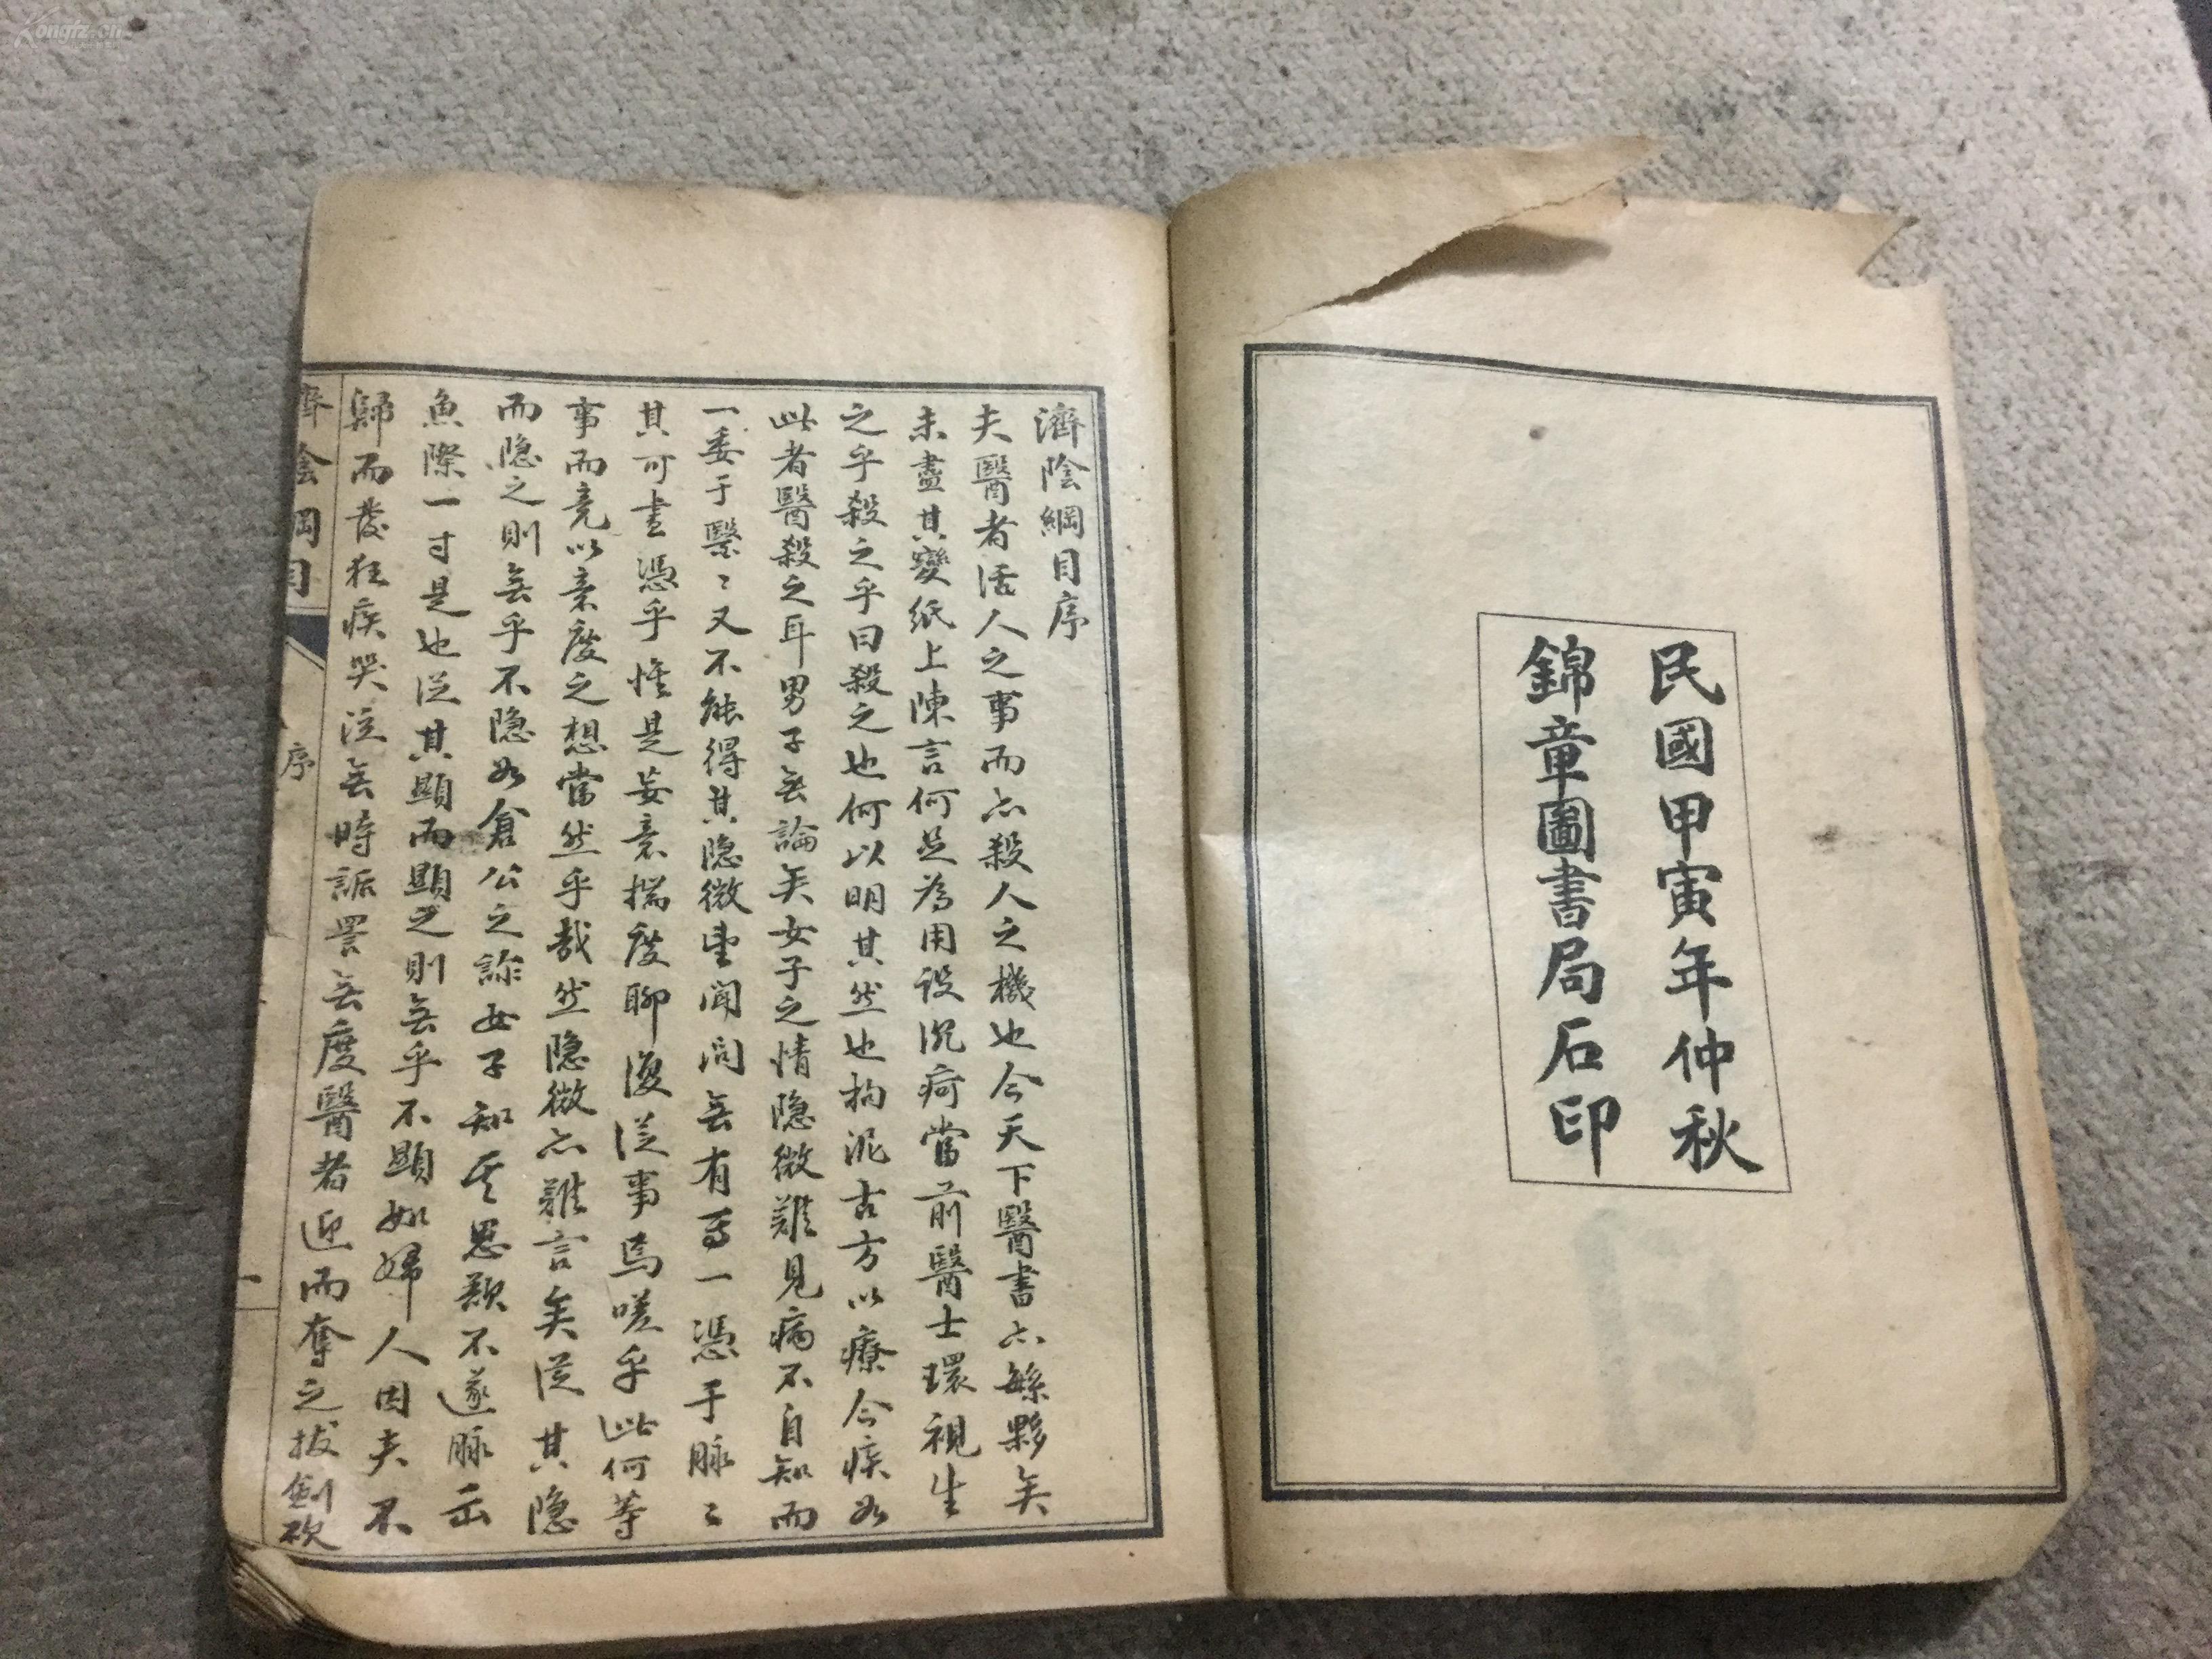 民國甲寅年仲秋
錦章圖書局石印
濟陰綱目序
夫醫者活人之事而亦殺人之機也今天下醫書亦繇夥矣
未盡其變紙上陳言何足為用設沉疴當前醫士環視生
之乎殺之乎曰殺之也何以明其然也拘泥古方以療今疾如
此者醫殺之耳男子無論矣女子之情隐微難見病不自知而
一委于醫〻又不能得其隐微望聞問無有焉一憑于脉〻
其可盡憑乎惟是妄意揣度聊復從事焉嗟乎此何等
事而竟以意度之想當然乎哉然隐微亦難言矣從其隐
而隐之則無乎不隐如倉公之診女子知其思欲不遂脉出
魚際一寸是也從其顯而顯之則無乎不顯如婦人因夫不
歸而發狂疾哭泣無時詬詈無度醫者迎而奪之拔劍砍
濟陰綱目
序
一
Kongfz.cn